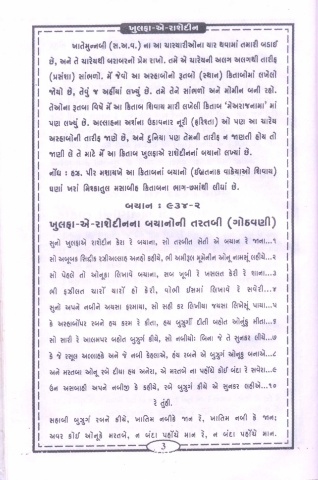 ખુલફા-એ-રાશેદીન
ખાતેમુન્નબી (સ.અ.વ.) ના આ ચારયારીઓના ચાર થવામાં તમારી બડાઈ
છે, અને તે ચારેયથી બરાબરનો પ્રેમ રાખો. તમે એ ચારેયની અલગ અલગથી તારીફ
(પ્રસંશા) સાંભળો. મેં જેવો આ અસ્હાબોનો રૂતબો (સ્થાન) કિતાબોમાં લખેલો
જોયો છે, તેવું જ અહીંયાં લખ્યું છે. તમે તેને સાંભળો અને મોમીન બની રહો.
તેઓના રૂતબા વિષે મેં આ કિતાબ શિવાય મારી લખેલી કિતાબ 'મેઅરાજનામા' માં
પણ લખ્યું છે. અલ્લાહના અર્શના ઉઠાવનાર નૂરી (ફરિશ્તા) ઓ પણ આ ચારેય
અસ્હાબોની તારીફ જાણે છે, અને દુનિયા પણ તેમની તારીફ ન જાણતી હોય તો
જાણી લે તે માટે મેં આ કિતાબ ખુલફાએ રાશેદીનનાં બયાનો લખ્યાં છે.
નોંધ : હઝ. પીર મશાયખે આ કિતાબનાં બયાનો (ઈબ્રતનાક વાકેયાઓ શિવાય)
ઘણાં ખરાં મિશ્કાતુલ મસાબીહ કિતાબના ભાગ-૭માંથી લીધાં છે.
બયાન : ૯૩૪-૨
ખુલફા-એ-રાશેદીનના બયાનોની તરતબી (ગોઠવણી)
સુનો ખુલફાએ રાશેદીન કેરા રે બયાના, સો તરબીત સેતી એ બયાન રે જાના...૧
સો અબુબક્ર સિદ્દીક રઝીઅલ્લાહ અનહો કહીયે, ભી અમીરૂલ મૂમેનીન ઓનૂ નામસૂં લહીયે...૨
સો પેહલે તો ઓનૂકા લિખાવે બયાના, સબ ખૂબી રે ખસલત કેરી રે શાના...૩
ભી ફઝીલત ચારોં યારોં હો કેરી, વોભી ઈસમાં લિખાવે રે સવેરી...૪
સુનો અપને નબીને અયસા ફરમાયા, સો સહી કર લિખીયા જયસા લિખેસૂં પાયા...૫
કે અસ્હાબોંપર રબને હય કરમ રે કીતા, હય બુઝુર્ગી દીતી બહોત ઓનૂંકુ મીતા...૬
સો સારી રે આલમપર બહોત બુઝુર્ગ કીયે, સો નબીયોં બિના જે તે સુનકર લીયે...૭
કે જે રસૂલ અલ્લાહકે અને જે નબી કેહલાએ, હય રબને એ બુઝુર્ગ ઓનૂકુ બનાએ...૮
અને મરતબા ઓનૂ રબે દીયા હય અનેરા, એ મરતબે ના પહોંચે કોઈ બંદા રે સવેરા...૯
ઉન અસહાબી અપને નબીજી કે કહીયે, રબે બુઝુર્ગ કીયે એ સુનકર લહીયે...૧૦
રે તુંહી.
સહાબી બુઝુર્ગ રબને કીયે, ખાતિમ નબીકે જાન રે, ખાતિમ નબી કે જાન;
અવર કોઈ ઓનૂકે મરતબે, ન બંદા પહોંચે માન રે, ન બંદા પહોંચે માન.
3